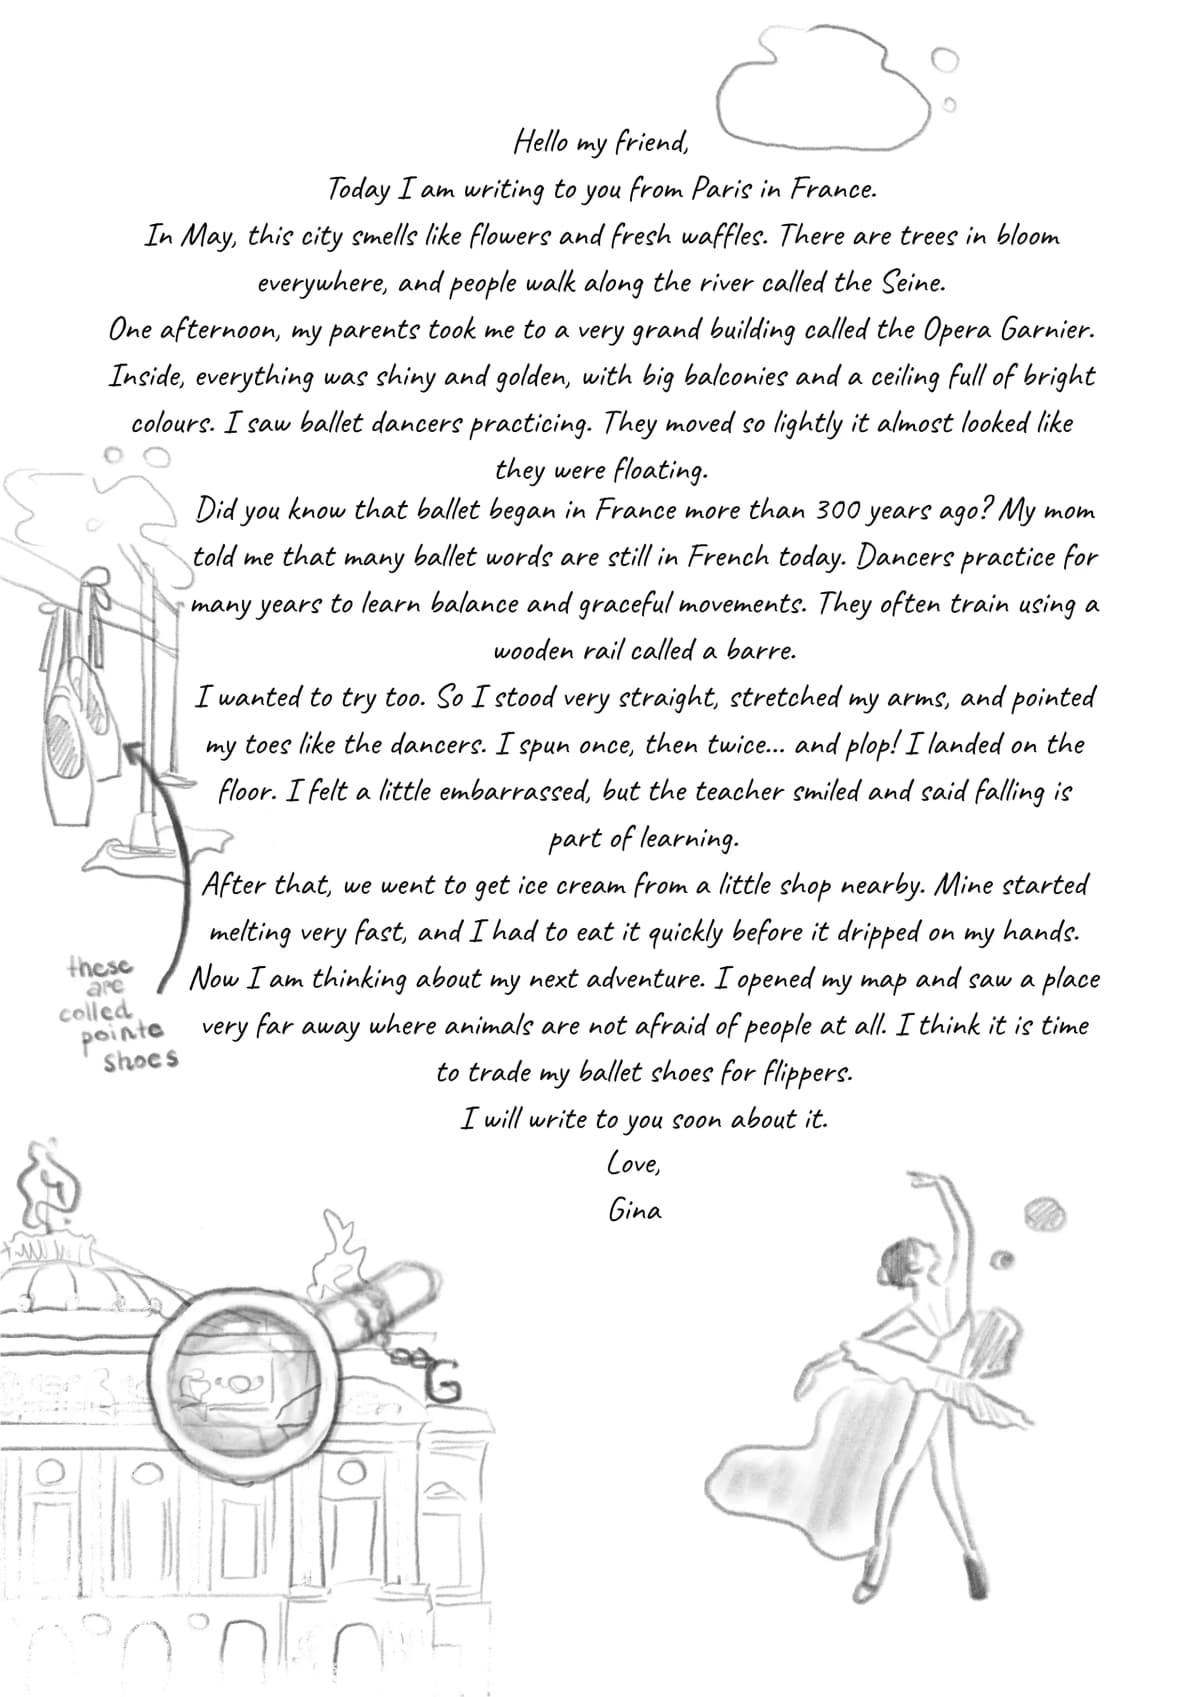 Hello my friend,
Today I am writing to you from Paris in France.
In May, this city smells like flowers and fresh waffles. There are trees in bloom
everywhere, and people walk along the river called the Seine.
One afternoon, my parents took me to a very grand building called the Opera Garnier.
Inside, everything was shiny and golden, with big balconies and a ceiling full of bright
colours. I saw ballet dancers practicing. They moved so lightly it almost looked like
they were floating.
Did you know that ballet began in France more than 300 years ago? My mom
told me that many ballet words are still in French today. Dancers practice for
many years to learn balance and graceful movements. They often train using a
wooden rail called a barre.
I wanted to try too. So I stood very straight, stretched my arms, and pointed
my toes like the dancers. I spun once, then twice... and plop! I landed on the
floor. I felt a little embarrassed, but the teacher smiled and said falling is
part of learning.
After that, we went to get ice cream from a little shop nearby. Mine started
melting very fast, and I had to eat it quickly before it dripped on my hands.
Now I am thinking about my next adventure. I opened my map and saw a place
very far away where animals are not afraid of people at all. I think it is time
to trade my ballet shoes for flippers.
I will write to you soon about it.
Love,
Gina
these
are
colled
pointe
shoes
G